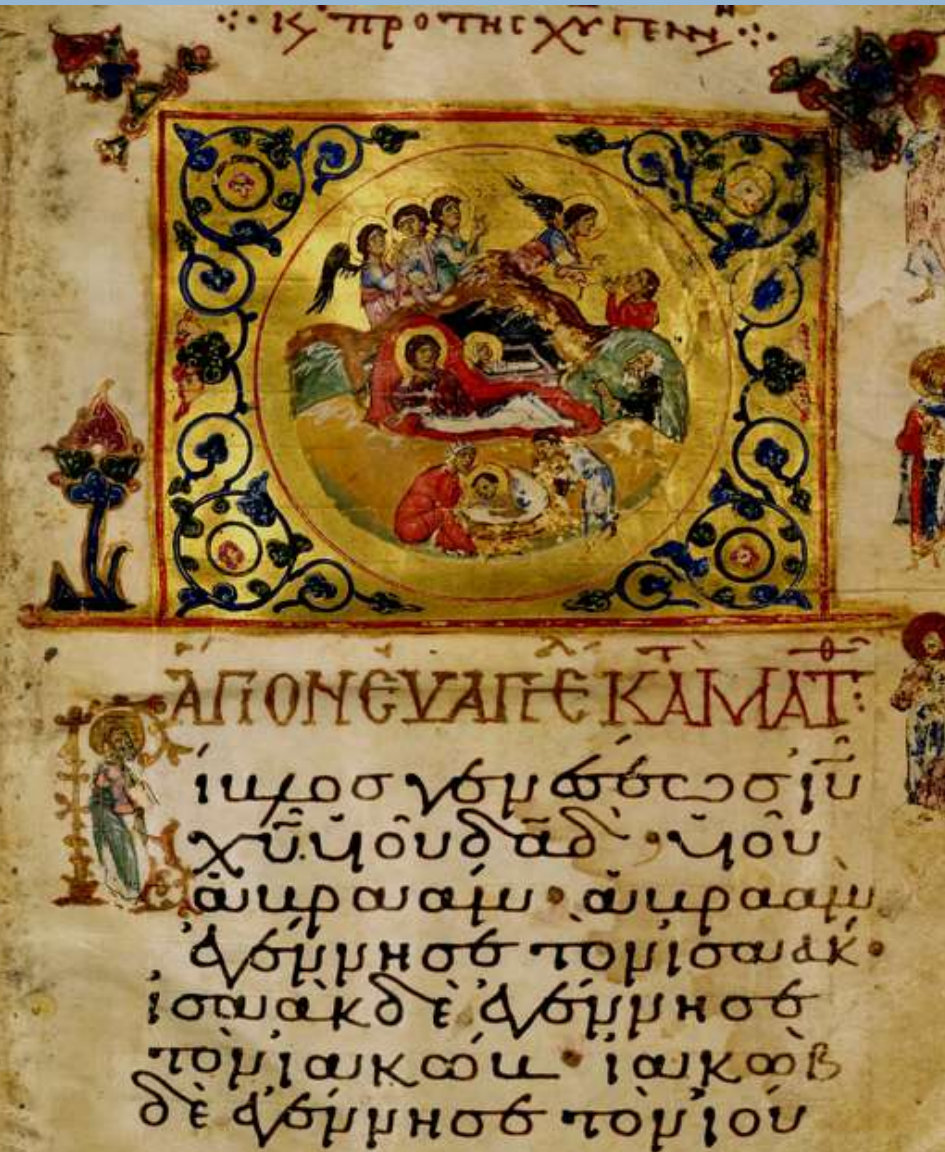 ΠΡΟ ΤΗϹ ΧΥ ΓΕΝΝ
ἉΓΙΟΝ ΕΥΑΓΓΕΛ ΚΑΤ ΜΑΤΘ
Βίβλος γενέσεως ἰῦ
χῦ υἱοῦ δᾱδ · υἱοῦ
ἀβραάμ · ἀβραὰμ
ἐγέννησε τὸν ἰσαάκ ·
ἰσαὰκ δὲ ἐγέννησε
τὸν ἰακώβ · ἰακὼβ
δὲ ἐγέννησε τὸν ἰού